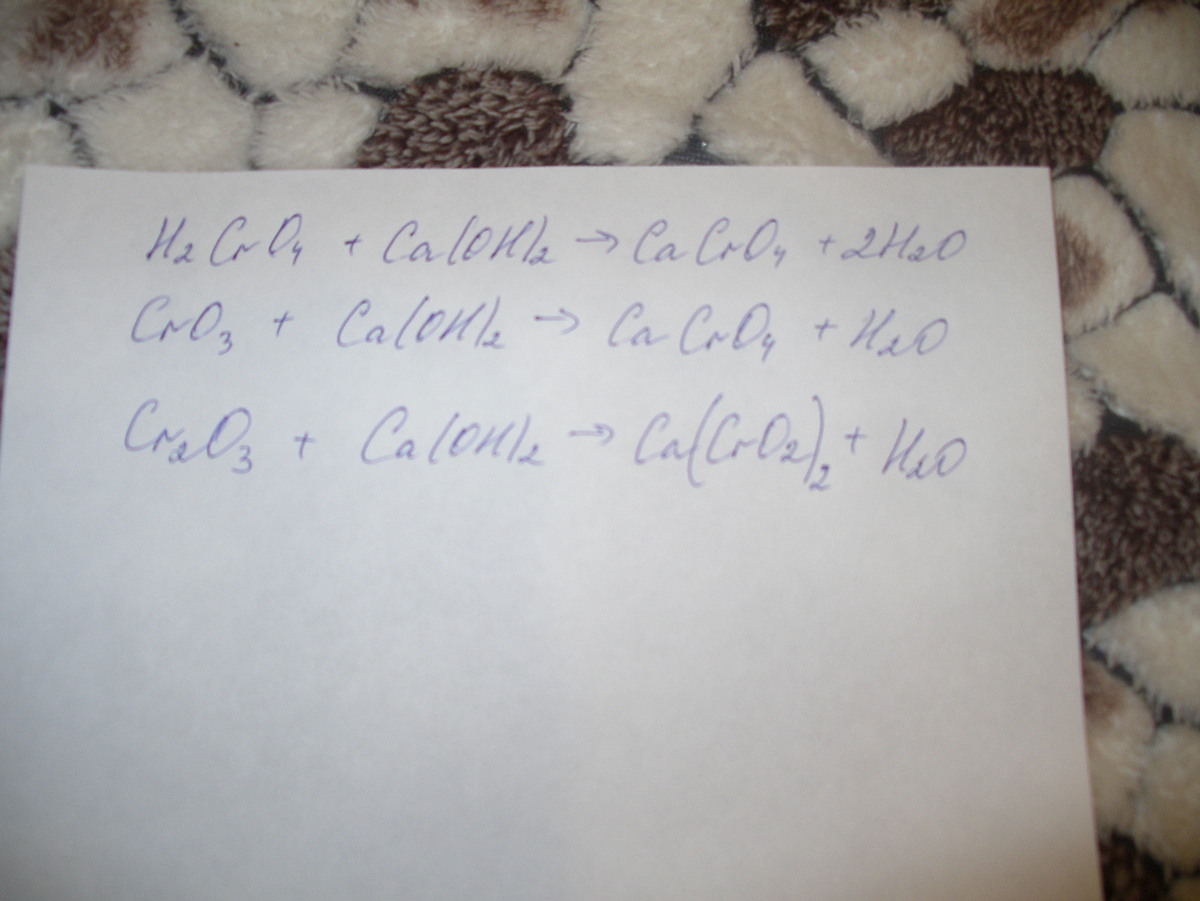 H₂CrO₄ + Ca(OH)₂ → CaCrO₄ + 2H₂O
CrO₃ + Ca(OH)₂ → CaCrO₄ + H₂O
Cr₂O₃ + Ca(OH)₂ → Ca(CrO₂)₂ + H₂O